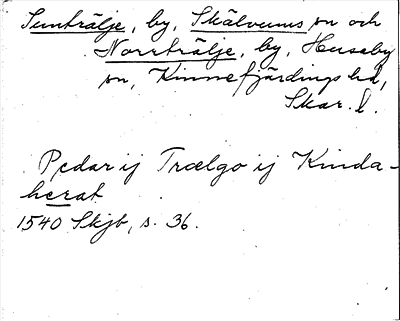 Sunträlje, by, Skälvums sn och
Norrträlje, by, Huseby
sn, Kinnefjärdings hd,
Skar. l.
Pedar ij Trælgo ij Kinda-
herat
1540 Skjb, s. 36.